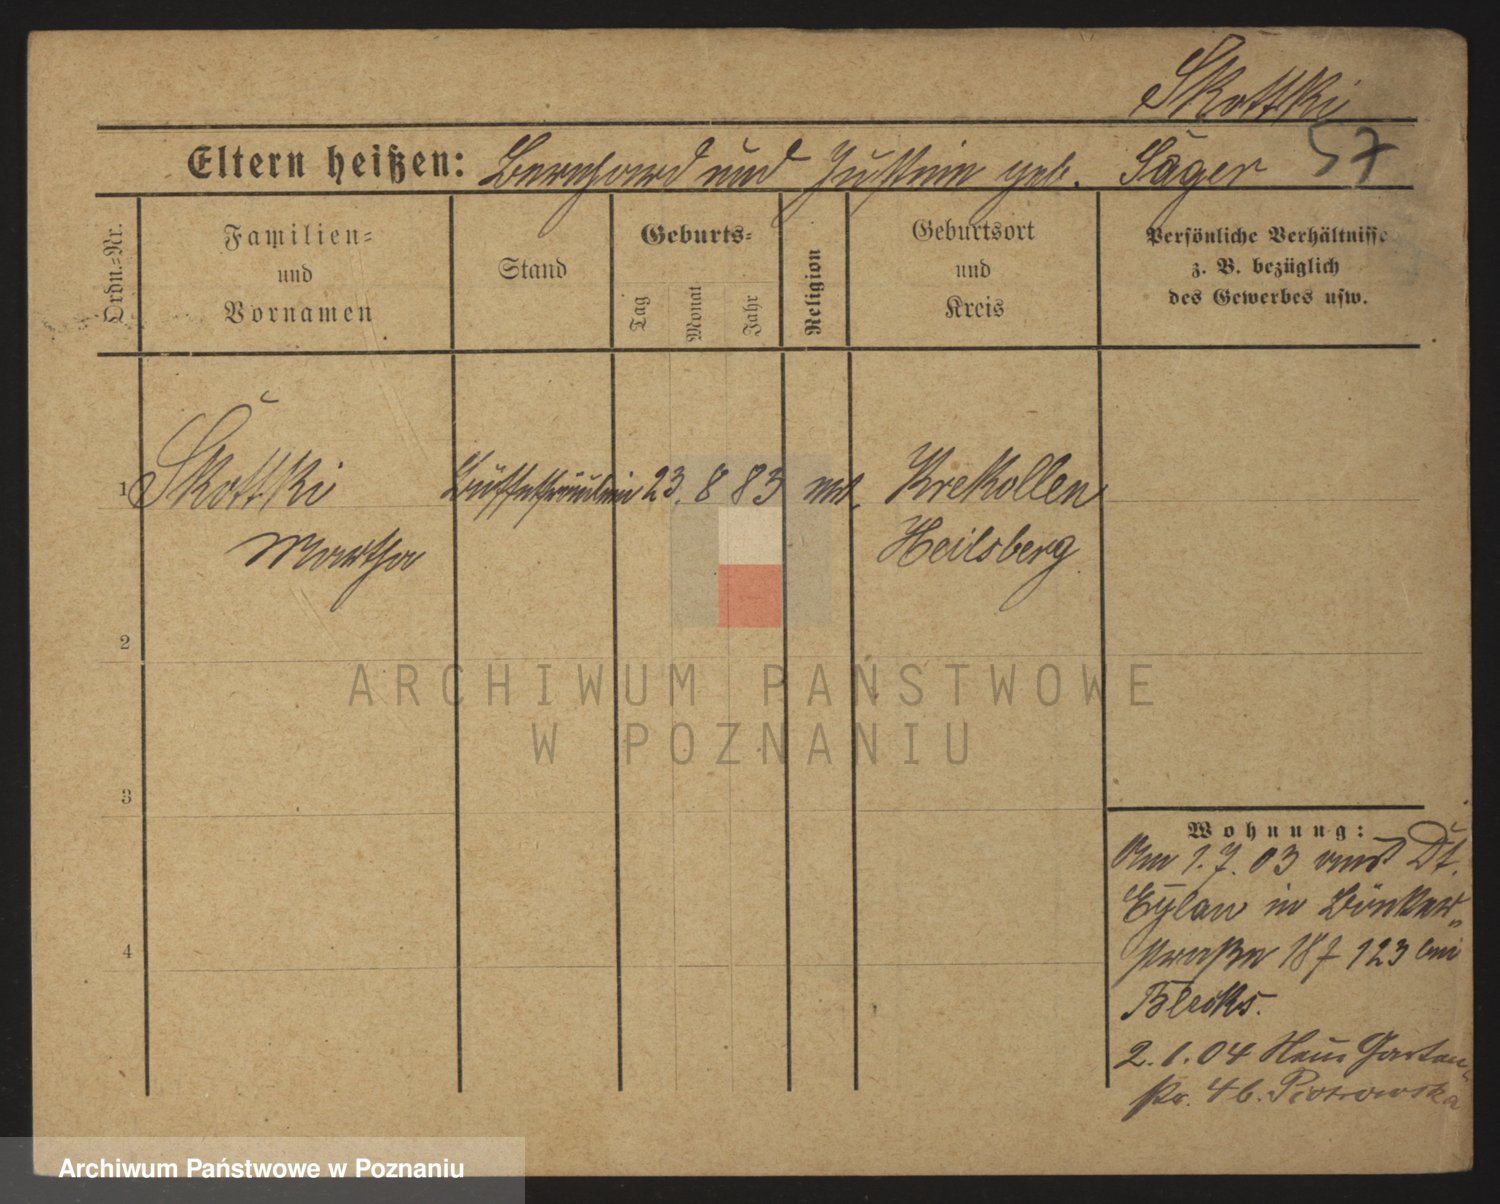 Skottki
Eltern heißen: Bernhard und Justine geb. Säger 57
Ordn.-Nr.
Familien-
und
Vornamen
Stand
Geburts-
Tag
Monat
Jahr
Religion
Geburtsort
und
Kreis
Persönliche Verhältnisse
z. B. bezüglich
des Gewerbes usw.
1 Skottki Büffetfräulein 23. 8 83 Krekollen
Martha Heilsberg
2
3
4
Wohnung:
Am 1.7.03 aus Dt.
Eylau in Bünker-
straße 187 123 bei
2.1.04 Neue Garten-
str. 46. Piotrowska
ARCHIWUM PAŃSTWOWE
W POZNANIU
Archiwum Państwowe w Poznaniu